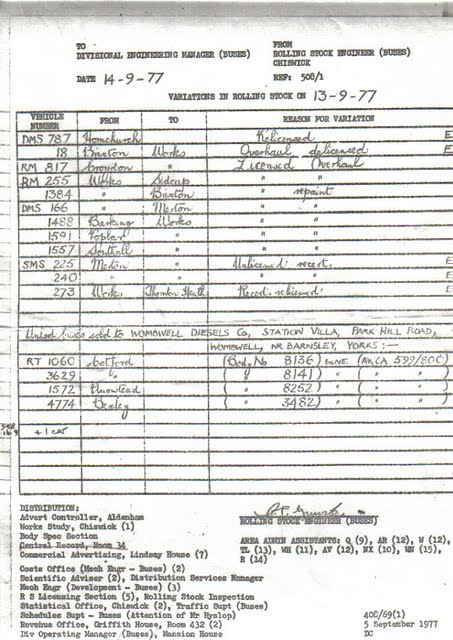 TO FROM
DIVISIONAL ENGINEERING MANAGER (BUSES) ROLLING STOCK ENGINEER (BUSES)
CHISWICK
DATE 14-9-77 REF: 508/1
VARIATIONS IN ROLLING STOCK ON 13-9-77
VEHICLE NUMBER FROM TO REASON FOR VARIATION
DMS 787 Hornchurch Relicensed E
18 Brixton Works Overhaul delicensed E
RM 817 Croydon Licensed Overhaul
RM 255 Works Sidcup " "
1384 " Brixton " repaint
DMS 166 " Merton " "
1488 Barking Works " "
1591 Poplar " " "
1557 Southall " " "
SMS 225 Merton " Unlicensed recert. E
240 " " " " E
273 Works Thornton Heath Recert. relicensed E
Unlicd buses sold to WOMBWELL DIESELS Co, STATION VILLA, PARK HILL ROAD,
WOMBWELL, NR BARNSLEY, YORKS :—
RT 1060 Catford (Body No 8136) (AN CA 599/80C)
3629 " ( " 8141) " ( " )
1572 Plumstead ( " 8252) " ( " )
4774 Bexley ( " 3482) " ( " )
+ 1 car
DISTRIBUTION:
Advert Controller, Aldenham
Works Study, Chiswick (1)
Body Spec Section
Central Record, Room 34
Commercial Advertising, Lindsay House (7)
Costs Office (Mech Engr - Buses) (2)
Scientific Adviser (2), Distribution Services Manager
Mech Engr (Development - Buses) (3)
R S Licensing Section (5), Rolling Stock Inspection
Statistical Office, Chiswick (2), Traffic Supt (Buses)
Schedules Supt - Buses (Attention of Mr Hyslop)
Revenue Office, Griffith House, Room 432 (2)
Div Operating Manager (Buses), Mansion House
ROLLING STOCK ENGINEER (BUSES)
AREA ADMIN ASSISTANTS: Q (9), AR (12), W (12),
TL (13), WH (11), AV (12), NX (10), WN (15),
R (14)
408/69(1)
5 September 1977
DC